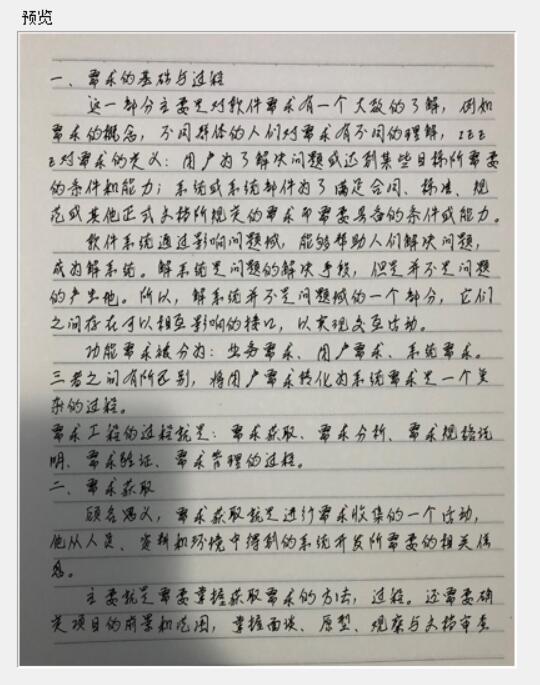 预览
一、需求的基础与过程
这一部分主要是对软件需求有一个大致的了解，例如
需求的概念，不同群体的人们对需求有不同的理解，IEE
E对需求的定义：用户为了解决问题或达到某些目标所需要
的条件和能力；系统或系统部件为了满足合同、标准、规
范或其他正式文档所规定的需求而需要具备的条件或能力。
软件系统通过影响问题域，能够帮助人们解决问题，
成为解系统。解系统是问题的解决手段，但是并不是问题
的产生地。所以，解系统并不是问题域的一个部分，它们
之间存在可以相互影响的接口，以实现交互活动。
功能需求被分为：业务需求、用户需求、系统需求。
三者之间有所区别，将用户需求转化为系统需求是一个复
杂的过程。
需求工程的过程就是：需求获取、需求分析、需求规格说
明、需求验证、需求管理的过程。
二、需求获取
顾名思义，需求获取就是进行需求收集的一个活动，
他从人员、资料和环境中得到的系统开发所需要的相关信
息。
主要就是需要掌握获取需求的方法，过程。还需要确
定项目的前景和范围，掌握面谈、原型、观察与文档审查